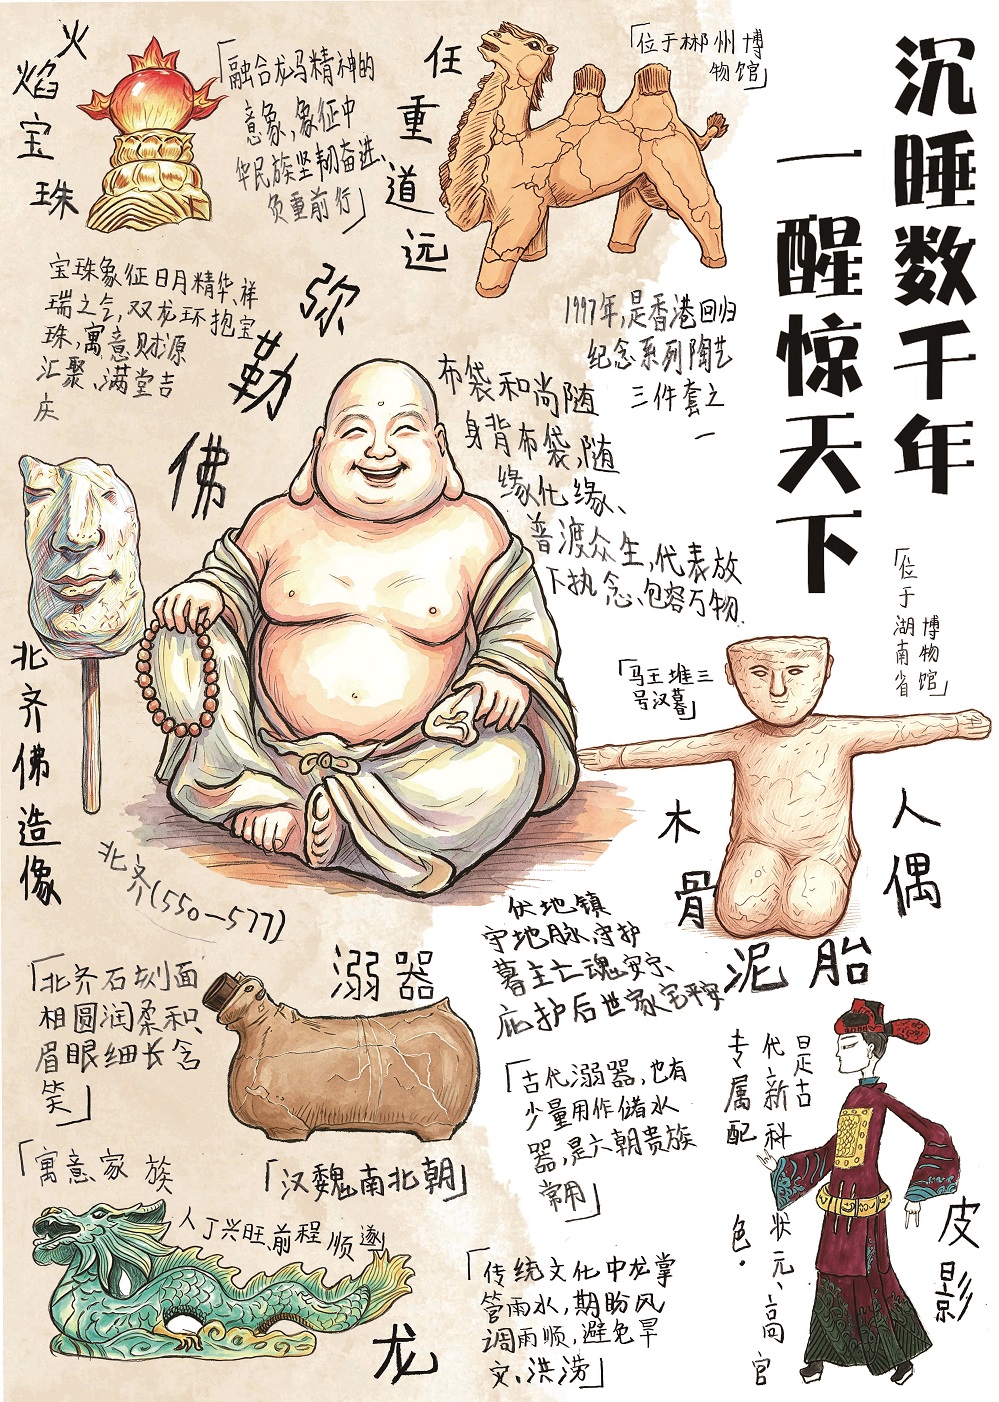 沉睡数千年
一醒惊天下
火焰宝珠
「融合龙马精神的
意象,象征中
华民族坚韧奋进、
负重前行」
任重道远
「位于郴州博
物馆」
宝珠象征日月精华、祥
瑞之气,双龙环抱宝
珠,寓意财源
汇聚、满堂吉
庆
弥勒佛
1997年,是香港回归
纪念系列陶艺
三件套之
一
布袋和尚随
身背布袋,随
缘化缘、
普渡众生,代表放
下执念、包容万物.
北齐佛造像
北齐(550—577)
「北齐石刻面
相圆润柔和
眉眼细长含
笑」
「位于湖南省
博物馆」
「马王堆三
号汉墓」
木骨泥胎
人偶
伏地镇
守地脉,守护
墓主亡魂安宁、
庇护后世家宅平安
溺器
「汉魏南北朝」
「古代溺器,也有
少量用作储水
器,是六朝贵族
常用」
是古
代新科状元、高官
专属配色.
皮影
「寓意家族
人丁兴旺,前程顺遂」
龙
「传统文化中龙掌
管雨水,期盼风
调雨顺,避免旱
灾、洪涝」